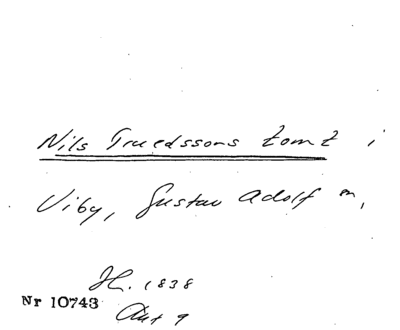 Nils Truedssons tomt i
Viby, Gustav Adolf sn,
H. 1838
Nr 10743
Akt 9